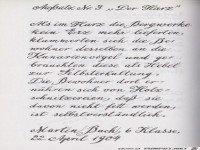 Aufsatz No 3 „Der Harz"
Als im Harz die Bergwerke
kein Erz mehr lieferten,
klammerten sich die Be-
wohner desselben an die
Kanarienvögel und ge-
brauchten diese als Hebel
zur Selbsterhaltung.
Die Bewohner dort er-
nähren sich von Holz-
schnitzereien, daß sie
davon nicht fett werden,
ist selbstverständlich.
Martin Bach, 6. Klasse,
22. April 1909